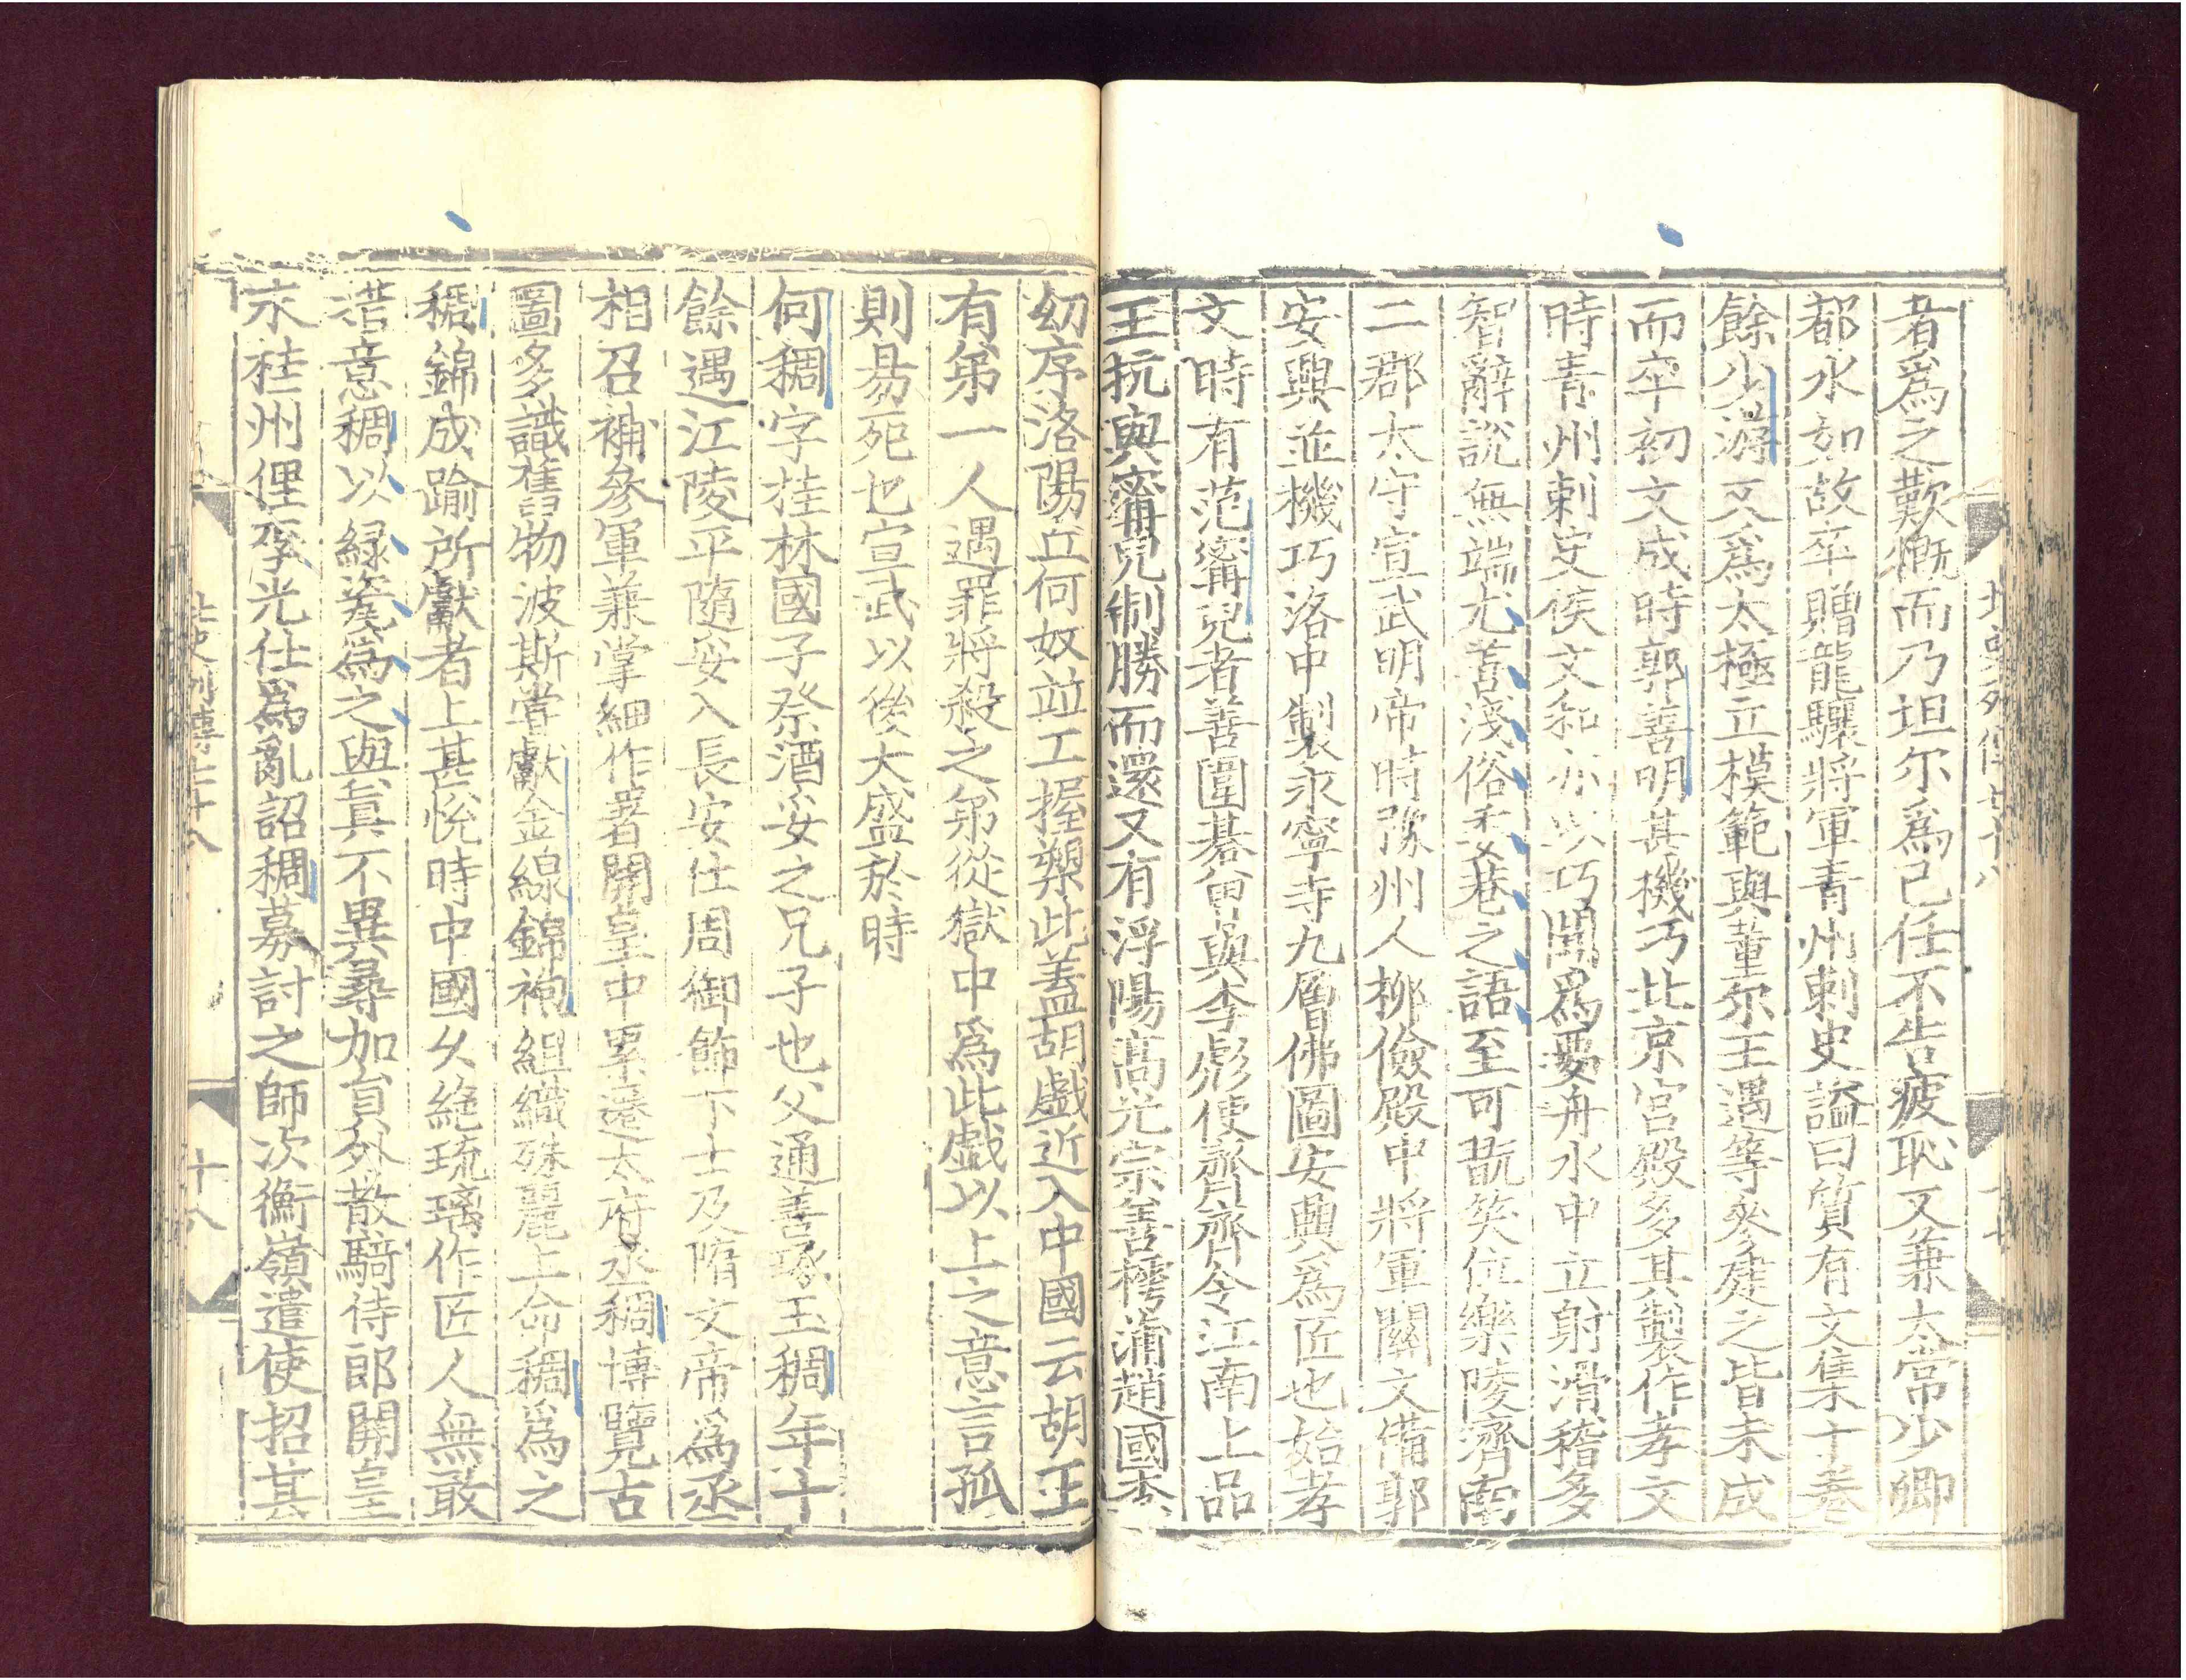 者爲之歎慨而乃坦尔爲己任不告疲恥又兼太常少卿
都水如故卒贈龍驤將軍青州刺史謚曰質有文集十卷
餘少游又爲太極立模範與董尔王遇等參建之皆未成
而卒初文成時郭善明甚機巧北京宮殿多其製作孝文
時青州刺史侯文和亦以巧聞爲要舟水中立射滑稽多
智辭說無端尤善淺俗委巷之語至可翫笑位樂陵濟南
二郡太守宣武明帝時豫州人柳儉殿中將軍關文備郭
安興並機巧洛中製永寧寺九層佛圖安興爲匠也始孝
文時有范甯兒者善圍碁曾與李彪使齊齊令江南上品
王抗與甯兒制勝而還又有浮陽高光宗善樗蒲趙國李
幼序洛陽丘何奴並工握槊此蓋胡戲近入中國云胡王
有弟一人遇罪將殺之弟從獄中爲此戲以上之意言孤
則易死也宣武以後大盛於時
何稠字桂林國子祭酒妥之兄子也父通善琢玉稠年十
餘遇江陵平隨妥入長安仕周御飾下士及隋文帝爲丞
相召補參軍兼掌細作署開皇中累遷太府丞稠博覽古
圖多識舊物波斯嘗獻金線錦袍組織殊麗上命稠爲之
稠錦成踰所獻者上甚悅時中國久絕琉璃作匠人無敢
措意稠以綠瓷爲之與眞不異尋加員外散騎侍郎開皇
末桂州俚李光仕爲亂詔稠募討之師次衡嶺遣使招其
北史列傳七十八
十八